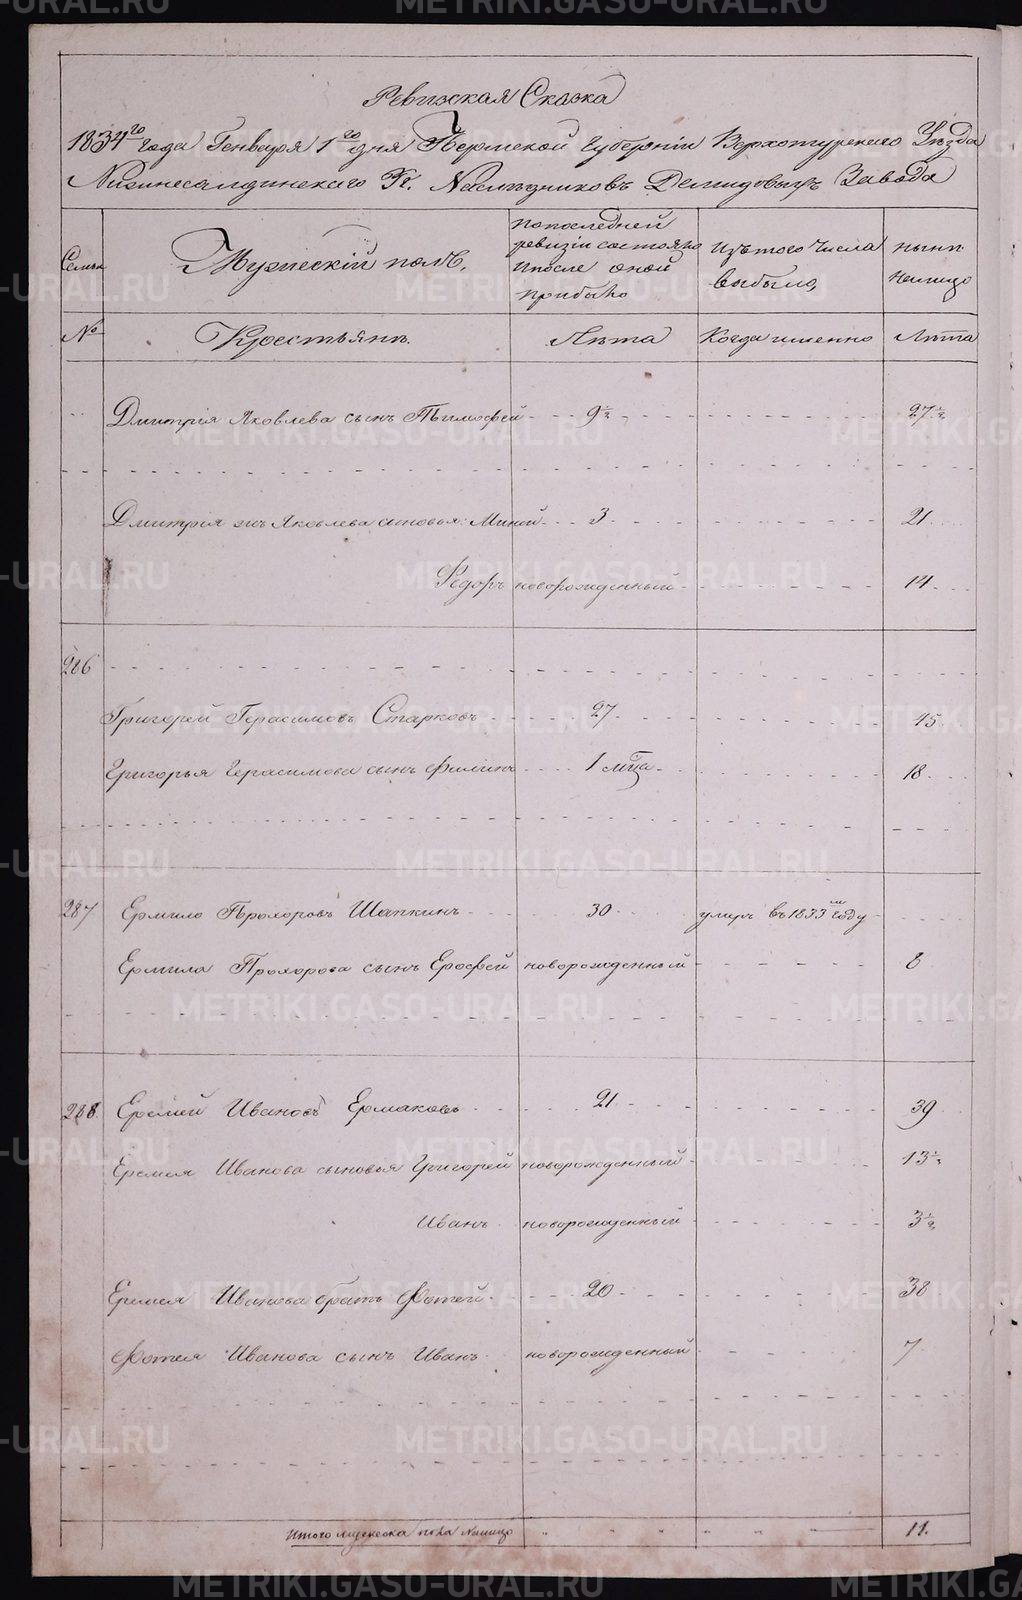 Ревизская Сказка
1834го года Генваря 1го дня Пермской Губернiи Верхотурскаго Уѣзда
Нижнесалдинскаго Гг. Наслѣдниковъ Демидовыхъ Завода
Семьи
Мужескiй полъ,
По последней ревизiи состояло и после оной прибыло
Изъ того числа выбыло,
Нынѣ на лицо
№
Крестьянъ.
Лѣта
Когда именно
Лѣта
Дмитрiя Яковлева сынъ Тимофей 9½ 27½
Дмитрiя Яковлева сыновья: Миней 3 21
Федоръ новорожденный 14
286
Григорей Герасимовъ Старковъ 27 45
Григорья Герасимова сынъ Филипъ 1 мца 18
287 Ермило Прохоровъ Шапкинъ 30 умеръ въ 1833м году
Ермила Прохорова сынъ Ерофей новорожденный 8
288 Еремей Ивановъ Ермаковъ 21 39
Еремея Иванова сыновья Григорей новорожденный 13½
Иванъ новорожденный 3½
Еремея Иванова братъ Фотей 20 38
Фотея Иванова сынъ Иванъ новорожденный 7
Итого мужеска пола налицо 11.
METRIKI.GASO-URAL.RU